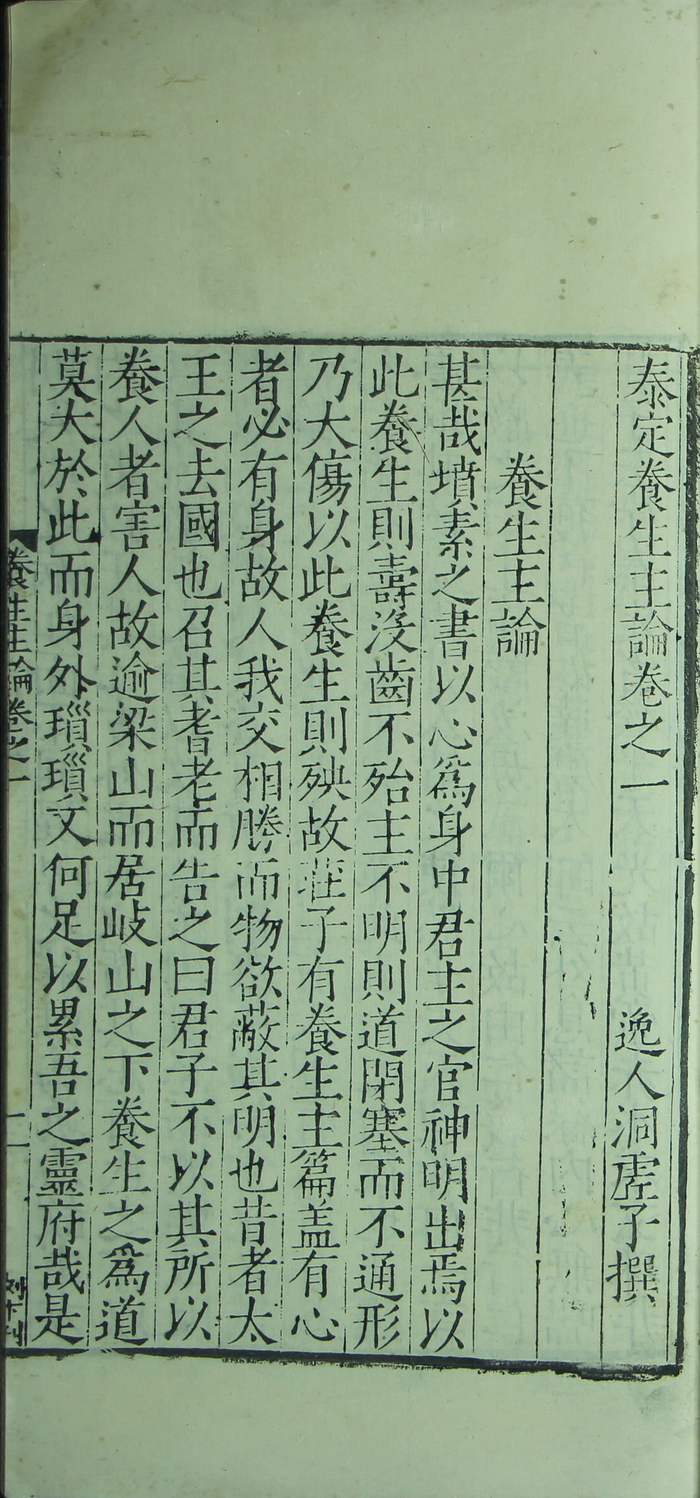 泰定養生主論卷之一
逸人洞虛子撰
養生主論
甚哉墳素之書以心爲身中君主之官神明出焉以
此養生則壽沒齒不殆主不明則道閉塞而不通形
乃大傷以此養生則殃故莊子有養生主篇盖有心
者必有身故人我交相勝而物欲蔽其明也昔者太
王之去國也召其耆老而告之曰君子不以其所以
養人者害人故逾梁山而居岐山之下養生之爲道
莫大於此而身外瑣瑣文何足以累吾之靈府哉是
養生主論卷之一
一